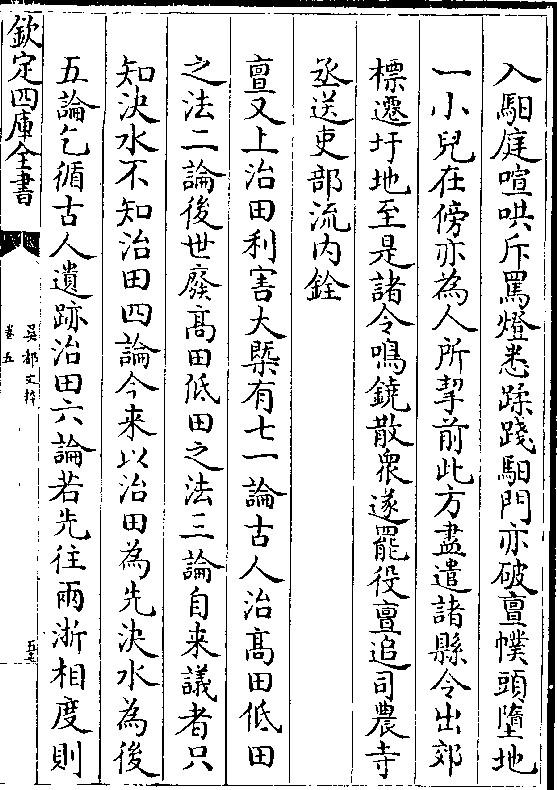 入馹庭喧哄斥罵燈悉蹂踐馹門亦破亶幞頭墮地
一小兒在傍亦為人所挈前此方盡遣諸縣令出郊
標遷圩地至是諸令鳴鐃散衆遂罷役亶追司農寺
丞送吏部流内銓
亶又上治田利害大槩有七一論古人治髙田低田
之法二論後世廢髙田低田之法三論自来議者只
知決水不知治田四論今来以治田為先決水為後
五論乞循古人遺跡治田六論若先往兩浙相度則
欽定四庫全書
吳都文粹
卷五